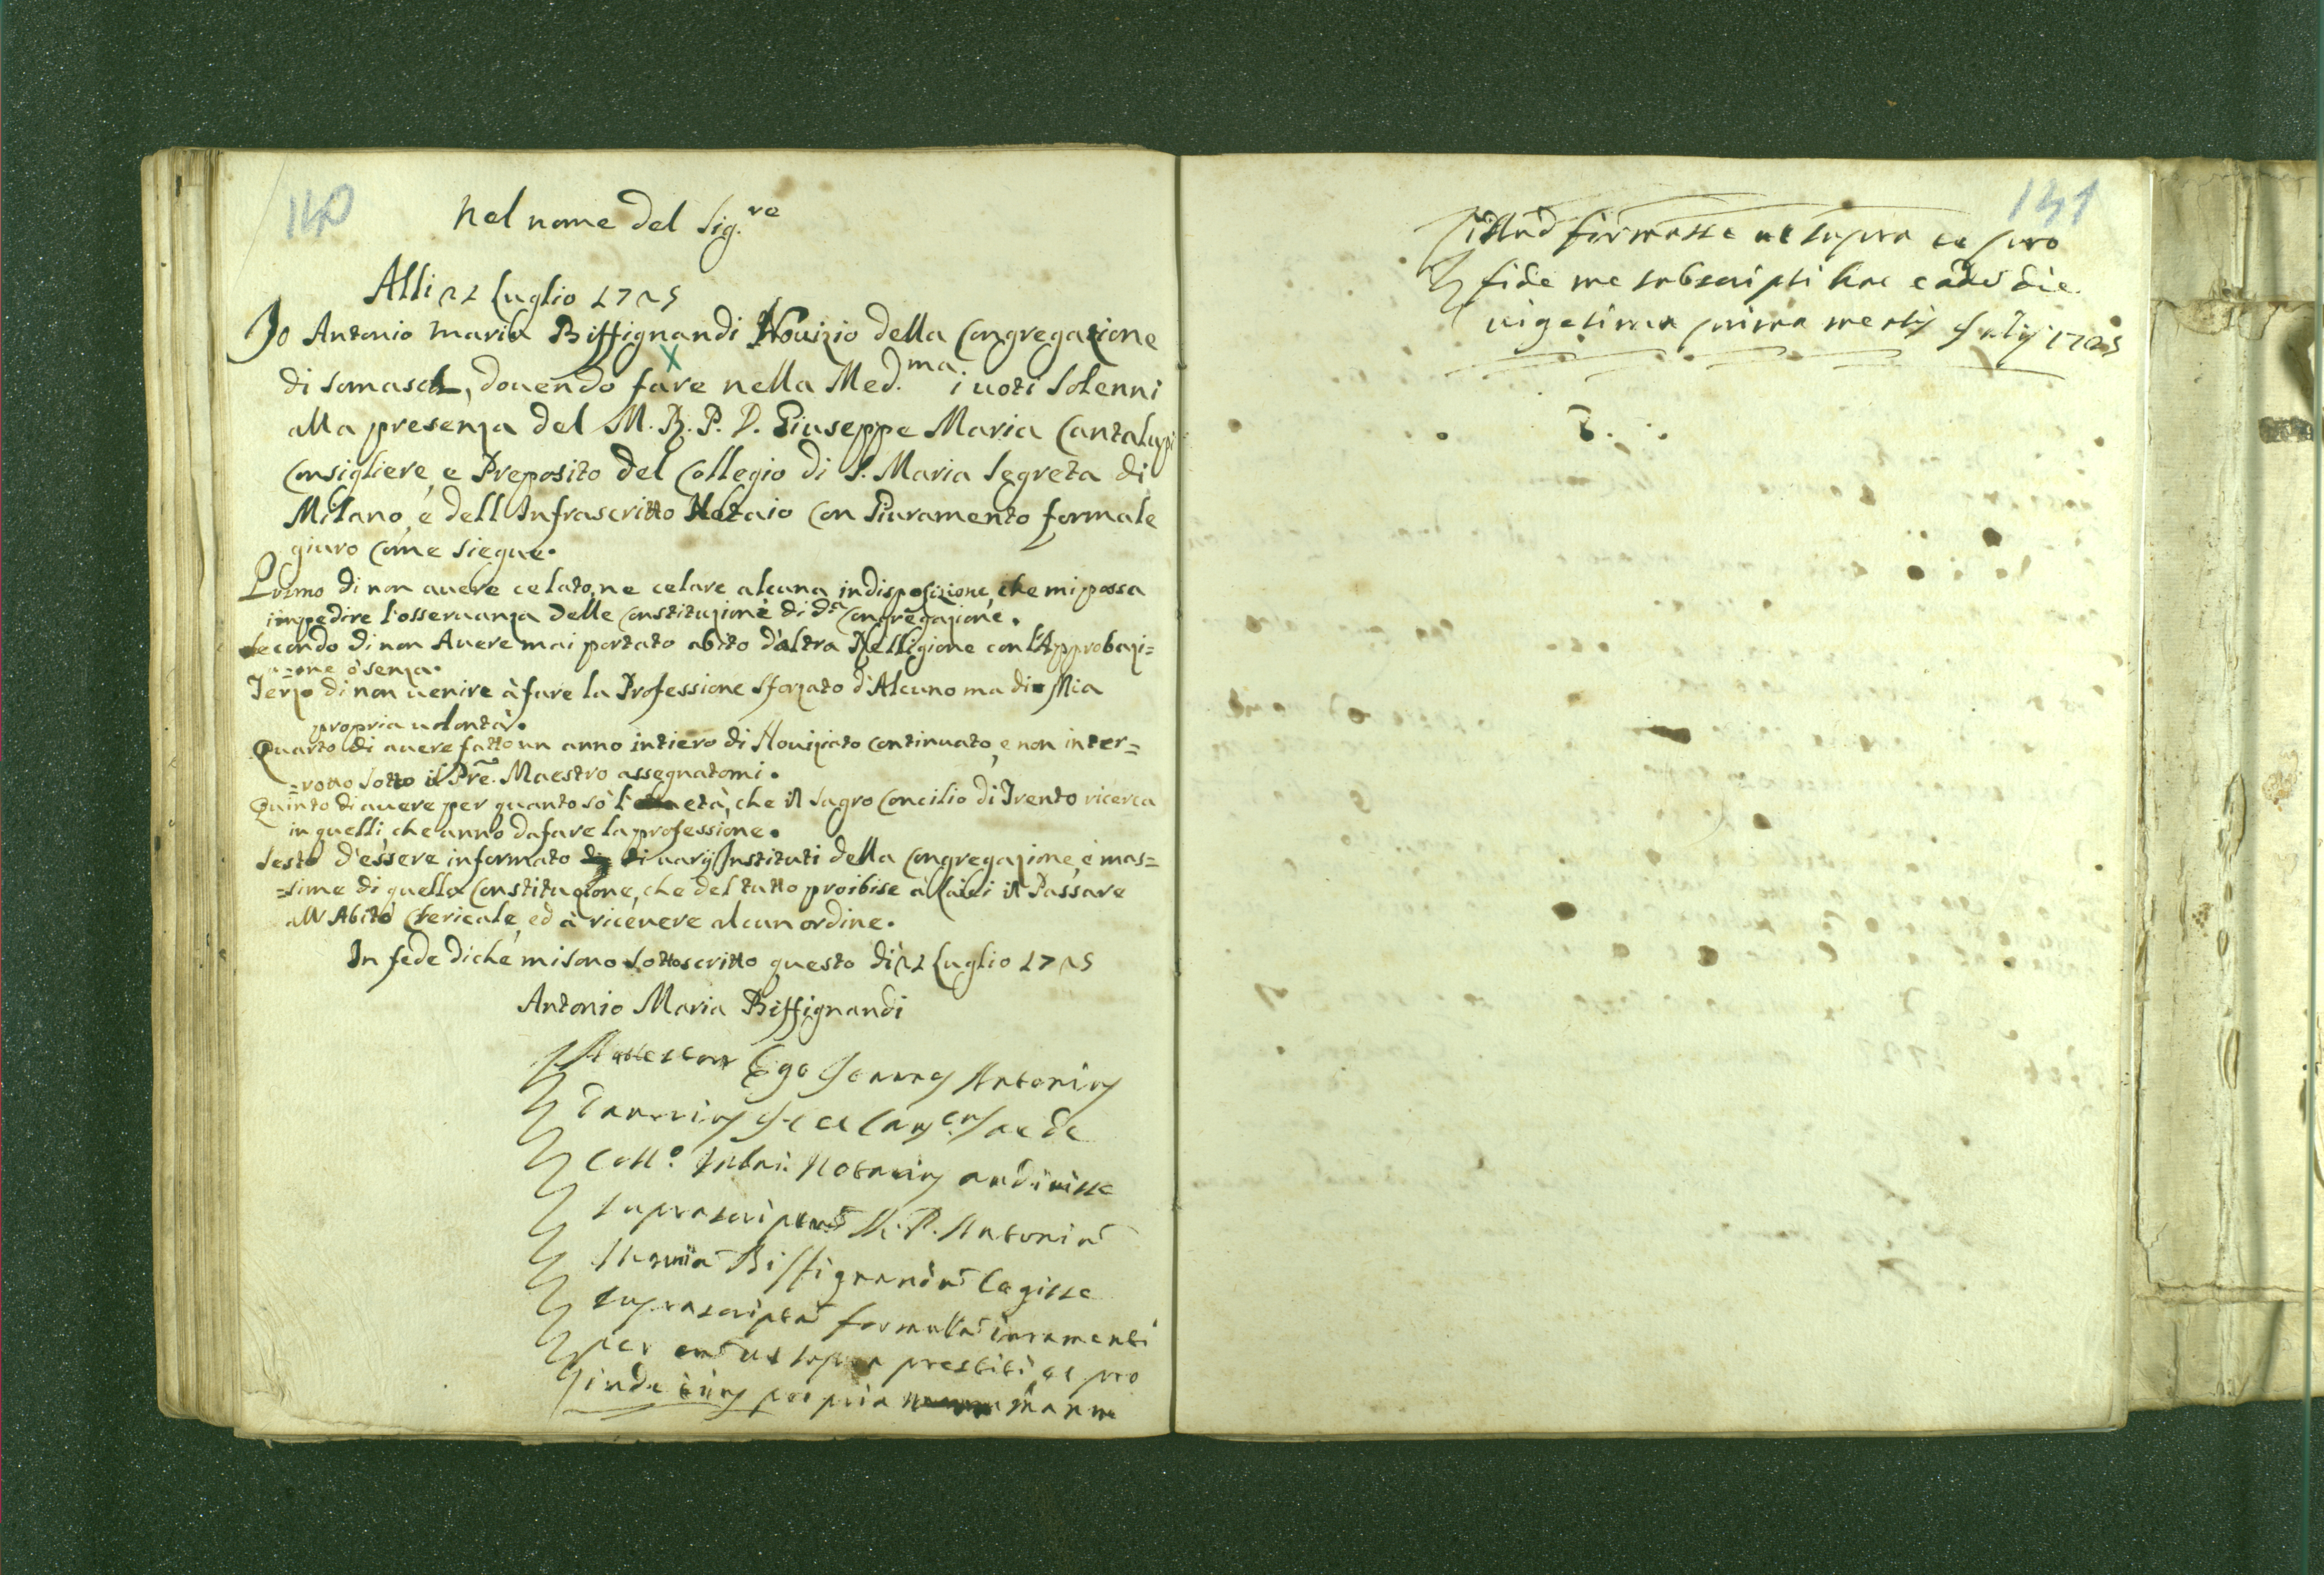 140
Nel nome del Sig.re
Alli 21 Luglio 1725
Io Antonio Maria Biffignandi Novizio della Congregazione
di Somasch, douendo fare nella Med.ma i uoti Solenni
alla presenza del M. R. P. D. Giuseppe Maria Cantalupi
Consigliere, e Preposito del Collegio di S. Maria Segreta di
Milano, e dell Infrascritto Notaio Con Giuramento formale
giuro Come Siegue.
Primo di non auere celato, ne celare alcuna indisposizione, che mi possa
impedire l'osseruanza delle Constituzione di da Congregazione.
Secondo di non Auere mai portato abito d'altra Relligione con l'Approbazi=
=one ò senza.
Terzo di non uenire à fare la Professione Sforzato d'Alcuno ma di Mia
propria uolontà.
Quarto di auere fatto un anno intiero di Nouiziato Continuato, e non inter=
=rotto Sotto il Pre. Maestro assegnatomi.
Quinto di auere per quanto sò l' età, che il Sagro Concilio di Trento ricerca
in quelli, che anno da fare la professione.
Sesto d'essere informato di uarij Instituti della Congregazione, e mas=
=sime di quella Constituzione, che del tutto proibise à Laici il Passare
all Abito Chericale, ed à riceuere alcun ordine.
In fede di che mi Sono Sottoscritto questo dì 21 Luglio 1725
Antonio Maria Biffignandi
Attestor Ego Joannes Antonius
et
Coll.o Notarius audiuisse
suprascriptum M. P. Antoniu
Maria Biffignandu legisse
suprascripta formula iuramenti
per eu ut supra prestiti, et pro
inde propria manu
141
illud firmasse ut supra et pro
fide me subscripsi hac eade die
uigesima prima mensis Julij 1725